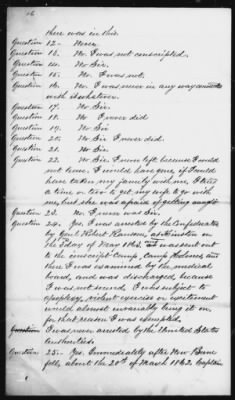 there was in this.
Question 12. None.
Question 13. No. I was not conscripted.
Question 14. No Sir.
Question 15. No. I was not.
Question 16. No. I was never in any way connected
with it whatever.
Question 17. No Sir.
Question 18. No I never did
Question 19. No Sir
Question 20. No Sir I never did.
Question 21. No Sir.
Question 22. No Sir. I never left because I could
not leave. I would have gone if I could
have taken my family with me. I tried
a time or two to get my wife to go with
me, but she was afraid of getting caught
Question 23. No I never was Sir.
Question 24. Yes. I was arrested by the Confederates
by Genl Robert Ransom, at Kinston on
the day of May 1862 and was sent out
to the conscript Camp, Camp Holmes and
there I was examined by the medical
board, and was discharged because
I was not sound. I was subject to
apoplexy, violent exercise or excitement
would almost invariably bring it on
for that reason I was exempted.
I was never arrested by the United States
authorities.
Question 25. Yes. Immediately after New Berne
fell, about the 20th of March 1862. Captain